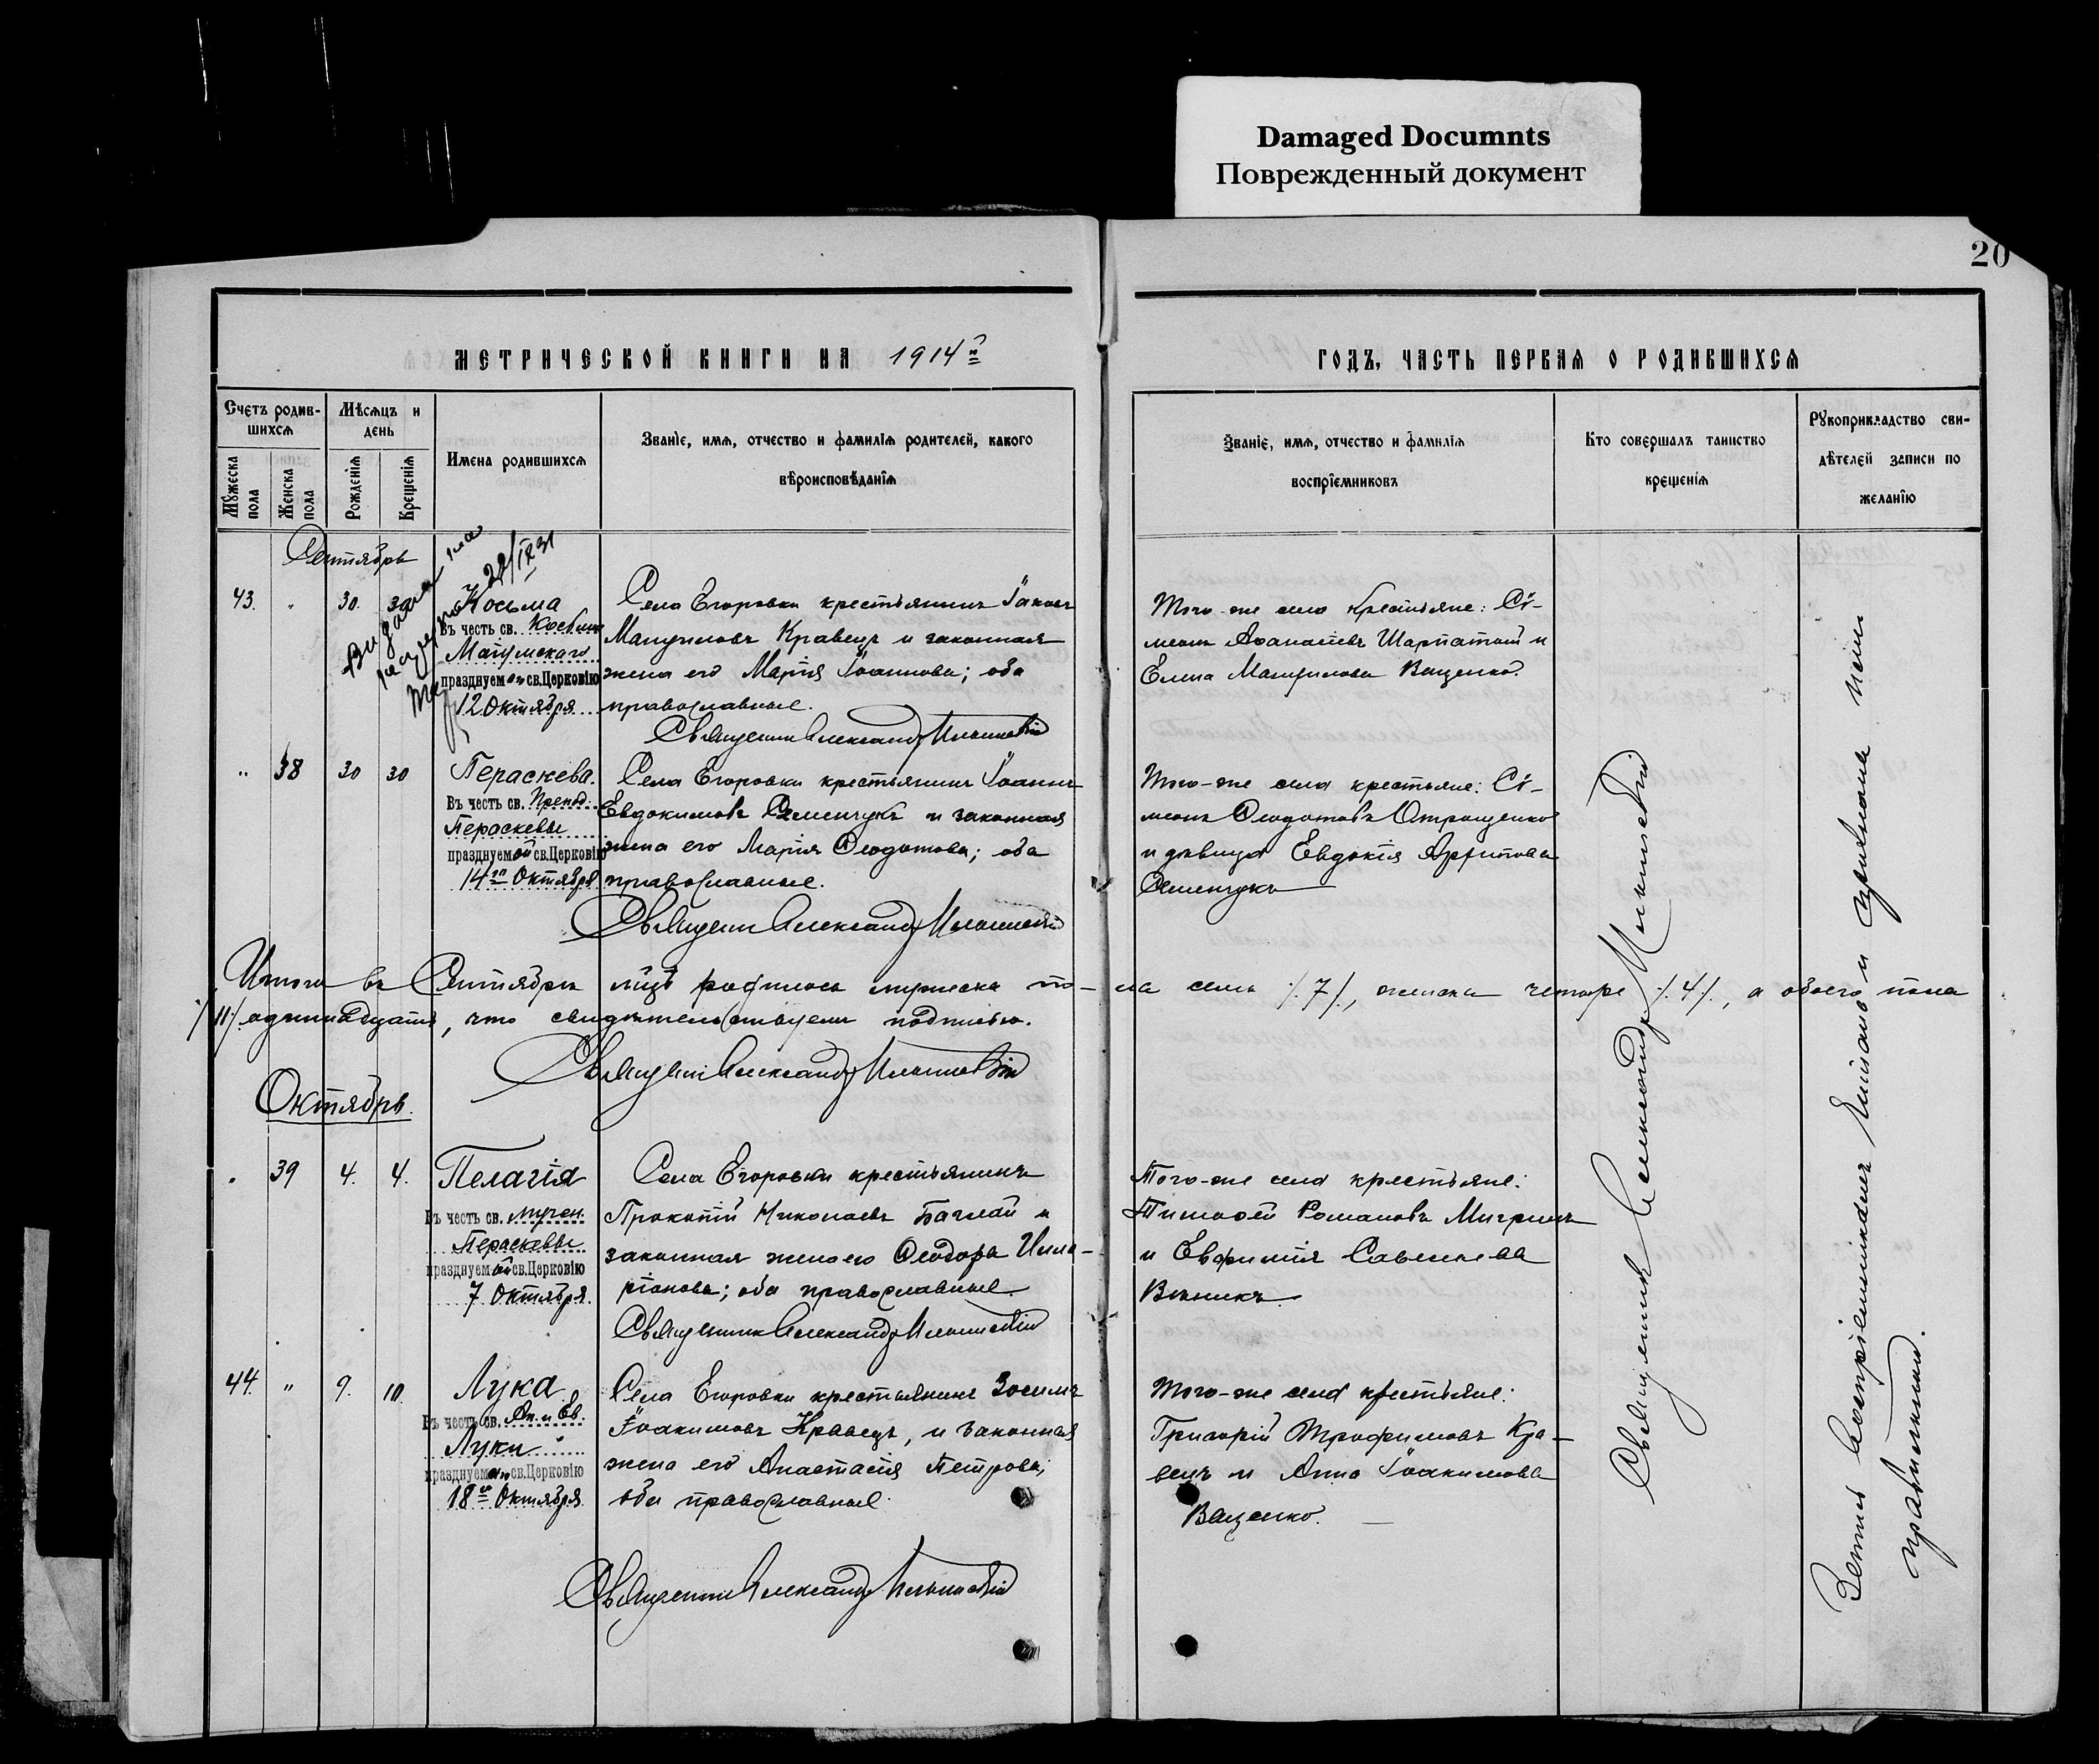 Damaged Documnts
Поврежденный документ
20
МЕТРИЧЕСКОЙ КНИГИ НА 1914 г.
ГОДЪ, ЧАСТЬ ПЕРВАЯ О РОДИВШИХСЯ
Счетъ родив-
шихся
Мужеска
пола
Женска
пола
Мѣсяцъ и
день
Рожденія
Крещенія
Имена родившихся
Званіе, имя, отчество и фамилія родителей, какого
вѣроисповѣданія
Званіе, имя, отчество и фамилія
воспріемниковъ
Кто совершалъ таинство
крещенія
Рукоприкладство сви-
дѣтелей записи по
желанію
Сентябрь
29/IX 31
43. " 30. 30
Косьма
Въ честь св. Косьмы
Маіумскаго
празднуемаго св. Церковію
12 Октября
Села Егоровки крестьянинъ Іаковъ
Мануиловъ Кравецъ и законная
жена его Марія Іоаннова; оба
православные.
Священникъ Александръ
Того-же села крестьяне: Сѵ-
меонъ Аѳанасіевъ Шарпатый и
Елена Мануилова Ващенко.
" 38 30 30
Параскева.
Въ честь св. Препод.
Параскевы
празднуемой св. Церковію
14го Октября
Села Егоровки крестьянинъ Іоаннъ
Евдокимовъ Семенчукъ и законная
жена его Марія Ѳеодотова; оба
православные.
Священникъ Александръ
Того-же села крестьяне: Сѵ-
меонъ Ѳеодотовъ Отрощенко
и дѣвица Евдокія
Семенчукъ
Итого въ Сентябрѣ мцѣ родилось мужска по-ла семь /.7/., женска четыре /.4/., а обоего пола
/11/. одиннадцать, что свидѣтельствуемъ подписью.
Священникъ Александръ
Октябрь.
" 39 4. 4.
Пелагія
Въ честь св. мучен.
Пераскевы
празднуемой св. Церковію
7 Октября
Села Егоровки крестьянинъ
Прокопій Николаевъ Баглай и
законная жена его Ѳеодора Илла-
ріонова; оба православные.
Священникъ Александръ
Того-же села крестьяне:
Тимоѳей Романовъ
и Евфимія Савельева
44. " 9. 10.
Лука
Въ честь св. Ап. и Ев.
Луки
празднуемаго св. Церковію
18го Октября
Села Егоровки крестьянинъ Зосимъ
Іоакимовъ Кравецъ, и законная
жена его Анастасія Петрова;
оба православные.
Священникъ Александръ
Того-же села крестьяне:
Григорій Трофимовъ Кра-
вецъ и Анна Іоакимова
Ващенко.
Священникъ Александръ